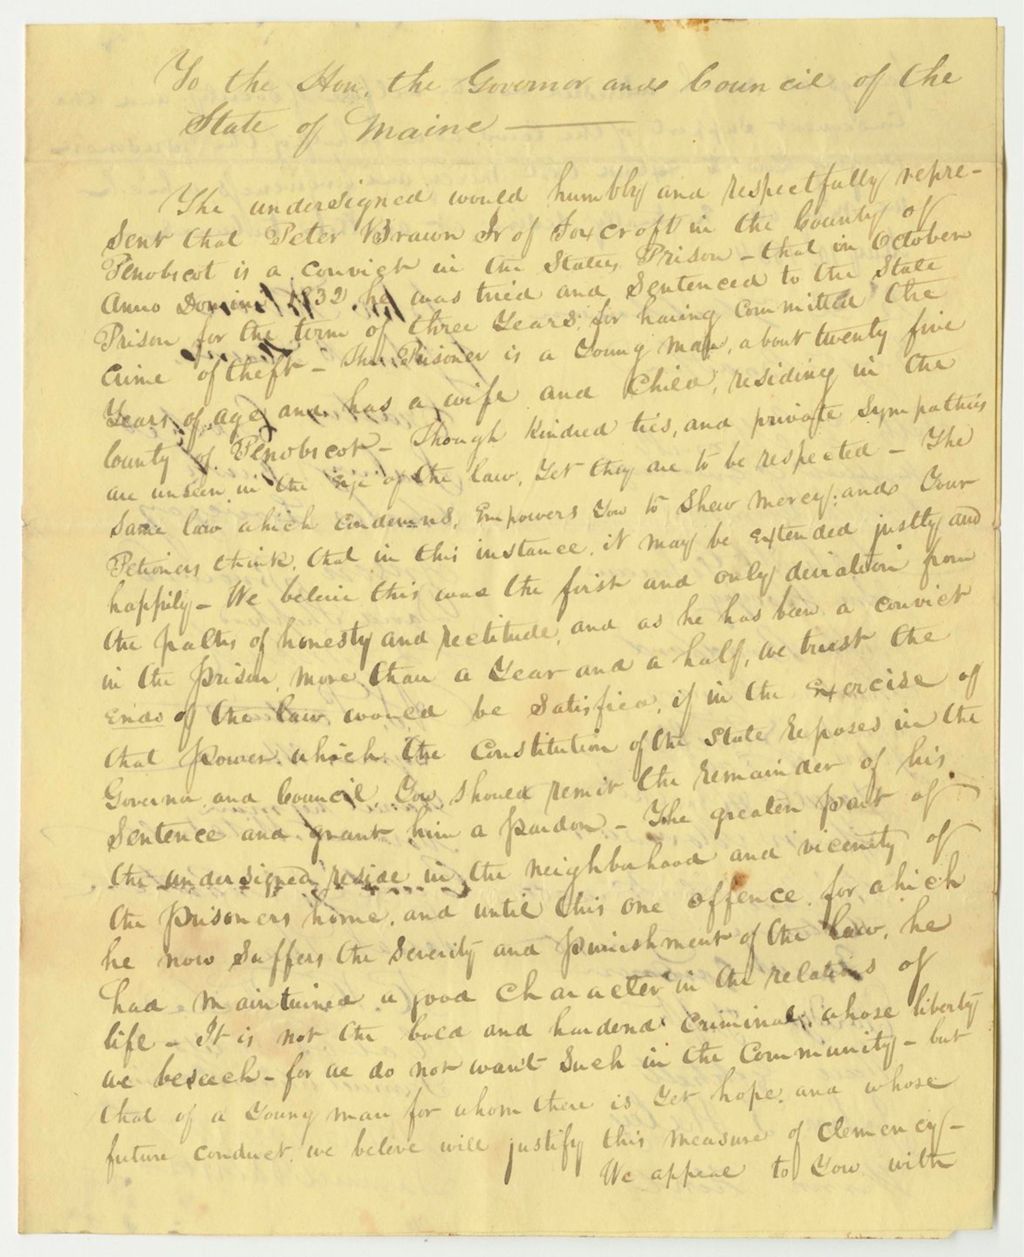 To the Hon. the Governor and Council of the
State of Maine ———
The undersigned would humbly and respectfully repre-
sent that Peter Brawn Jr of Foxcroft in the County of
Penobscot is a convict in the States Prison - that in October
Anno Domini 1832 he was tried and Sentenced to the State
Prison for the term of three Years, for having Committed the
Crime of theft - The Prisoner is a Young man, about twenty five
Years of age, and has a wife and Child, residing in the
County of Penobscot - Though Kindred ties, and private Sympathies
are unseen in the Eye of the law, Yet they are to be respected - The
Same law which Condemns, Empowers You to Shew mercy; and Your
Petioners think, that in this instance, it may be Extended justly and
happily - We believe this was the first and only deviation from
the paths of honesty and rectitude, and as he has been a convict
in the Prison, more than a Year and a half, we trust the
Ends of the law, would be Satisfied, if in the Exercise of
that Power which the Constitution of the State reposes in the
Governor and Council, You should remit the remainder of his
Sentence and grant him a Pardon - The greater part of
the undersigned reside in the neighborhood and vicinity of
the Prisoners home, and until this one offence, for which
he now Suffers the Severity and Punishment of the law, he
had maintained a good character in the relations of
life - It is not the bold and hardend criminal, whose liberty
we beseech - for we do not want Such in the Community - but
that of a Young man for whom there is Yet hope, and whose
future conduct, we beleve will justify this measure of clemency -
We appeal to You with